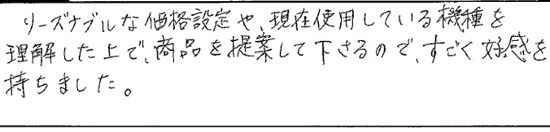 リーズナブルな価格設定や、現在使用している機種を
理解した上で、商品を提案して下さるので、すごく好感を
持ちました。